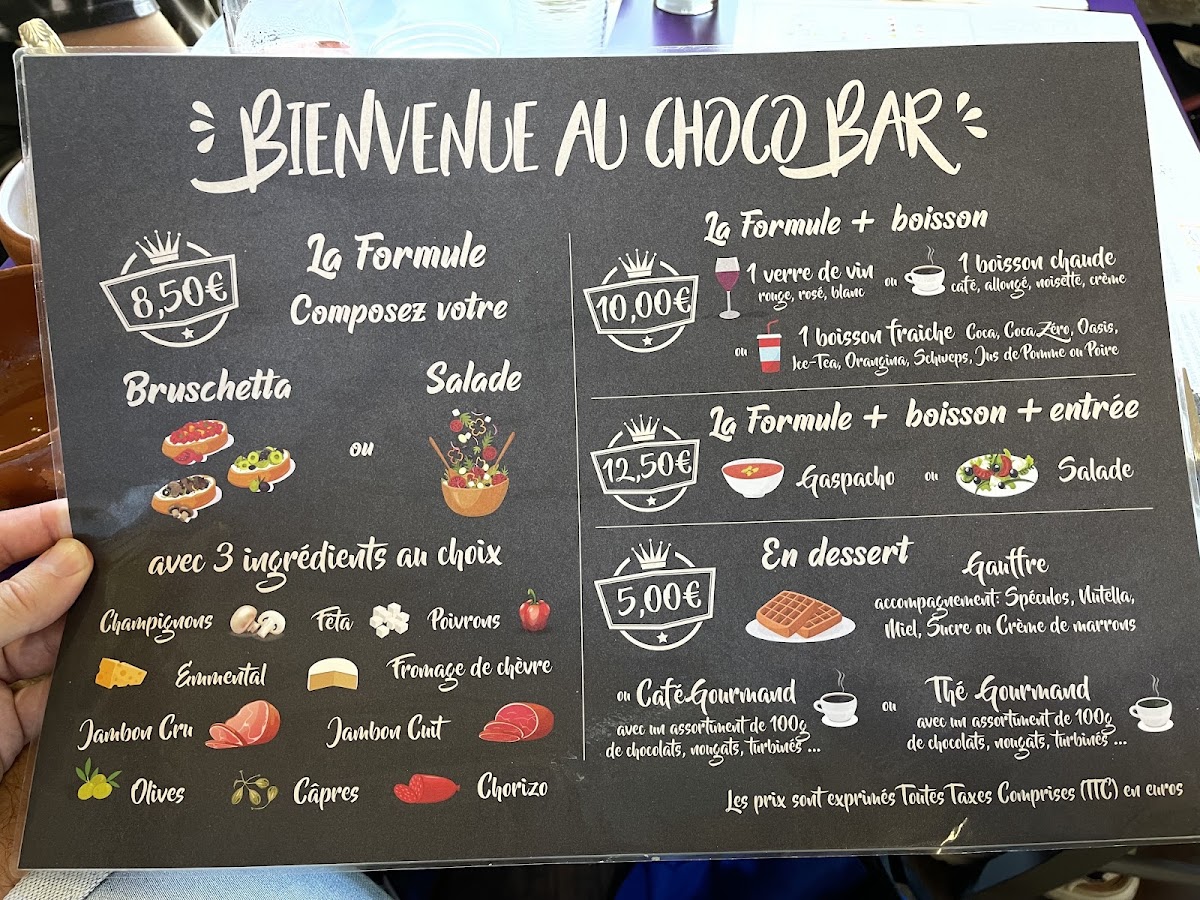 BIENVENUE AU CHOCO BAR
8,50€
La Formule
Composez votre
Bruschetta
ou
Salade
avec 3 ingrédients au choix
Champignons
Féta
Poivrons
Emmental
Fromage de chèvre
Jambon Cru
Jambon Cuit
Olives
Câpres
Chorizo
La Formule + boisson
10,00€
1 verre de vin
rouge, rosé, blanc
ou
1 boisson chaude
café, allongé, noisette, crème
ou
1 boisson fraiche Coca, Coca Zéro, Oasis,
Ice-Tea, Orangina, Schweps, Jus de Pomme ou Poire
La Formule + boisson + entrée
12,50€
Gaspacho
ou
Salade
5,00€
En dessert
Gauffre
accompagnement: Spéculos, Nutella,
Miel, Sucre ou Crème de marrons
ou Café Gourmand
avec un assortiment de 100g
de chocolats, nougats, turbinés ...
ou
Thé Gourmand
avec un assortiment de 100g
de chocolats, nougats, turbinés ...
Les prix sont exprimés Toutes Taxes Comprises (TTC) en euros